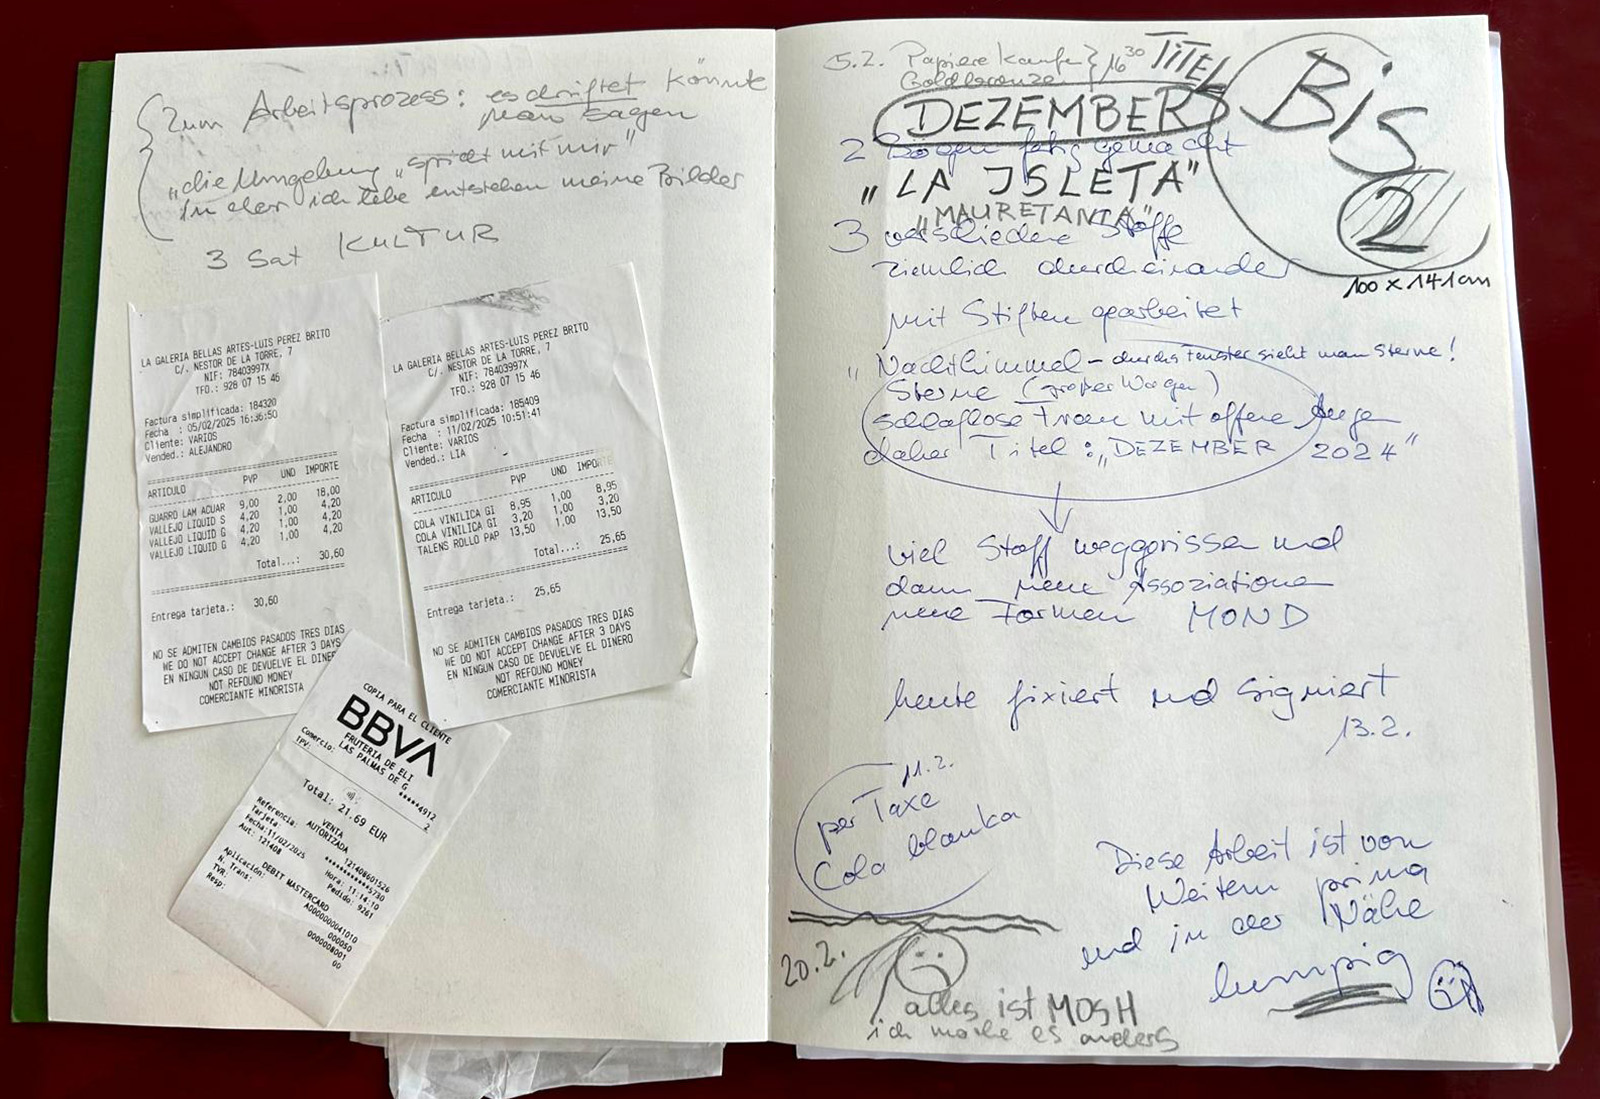 Zum Arbeitsprozess: es driftet könnte
man sagen
„die Umgebung „spricht mit mir"
in der ich lebe entstehen meine Bilder
3 Sat KULTUR
LA GALERIA BELLAS ARTES-LUIS PEREZ BRITO
C/. NESTOR DE LA TORRE, 7
NIF: 78403997X
TFO.: 928 07 15 46
Factura simplificada: 184320
Fecha : 05/02/2025 16:36:50
Cliente: VARIOS
Vended.: ALEJANDRO
ARTICULO PVP UND IMPORTE
GUARRO LAM ACUAR 9,00 2,00 18,00
VALLEJO LIQUID S 4,20 1,00 4,20
VALLEJO LIQUID G 4,20 1,00 4,20
VALLEJO LIQUID G 4,20 1,00 4,20
Total...: 30,60
Entrega tarjeta.: 30,60
NO SE ADMITEN CAMBIOS PASADOS TRES DIAS
WE DO NOT ACCEPT CHANGE AFTER 3 DAYS
EN NINGUN CASO DE DEVUELVE EL DINER
NOT REFOUND MONEY
COMERCIANTE MINORISTA
LA GALERIA BELLAS ARTES-LUIS PEREZ BRITO
C/. NESTOR DE LA TORRE, 7
NIF: 78403997X
TFO.: 928 07 15 46
Factura simplificada: 185409
Fecha : 11/02/2025 10:51:41
Cliente: VARIOS
Vended.: LIA
ARTICULO PVP UND IMPORTE
COLA VINILICA GI 8,95 1,00 8,95
COLA VINILICA GI 3,20 1,00 3,20
TALENS ROLLO PAP 13,50 1,00 13,50
Total...: 25,65
Entrega tarjeta.: 25,65
NO SE ADMITEN CAMBIOS PASADOS TRES DIAS
WE DO NOT ACCEPT CHANGE AFTER 3 DAYS
EN NINGUN CASO DE DEVUELVE EL DINERO
NOT REFOUND MONEY
COMERCIANTE MINORISTA
COPIA PARA EL CLIENTE
BBVA
FRUTERIA DE ELI
LAS PALMAS DE G
Comercio: *****4912
TPV: 2
Total: 21.69 EUR
VENTA
AUTORIZADA
Referencia: 121408601526
Tarjeta: ************5730
Fecha:11/02/2025 Hora: 11:14:10
Aut: 121408 Pedido: 9261
DEBIT MASTERCARD
Aplicación: A0000000041010
N. Trans: 000050
TVR: 0000008001
Resp: 00
5.2. Papiere kaufen } 16 30
Goldbronze
TITEL
DEZEMBER
Bis
2
100 x 141 cm
2 Bögen fertig gemacht
„LA ISLETA"
„MAURETANIA"
3 verschiedene Stoffe
ziemlich durcheinander
mit Stiften gearbeitet
„Nachthimmel – durchs Fenster sieht man Sterne!
Sterne (großer Wagen)
schlaflose Frau mit offene Augen
daher Titel: „DEZEMBER 2024"
viel Stoff weggerissen und
dann neue Assoziationen
neue Formen MOND
heute fixiert und signiert
13.2.
11.2.
per Taxe
Cola blanka
Diese Arbeit ist von
Weitem prima
und in der Nähe
lumpig
20.2.
alles ist MOSH
ich mache es anders